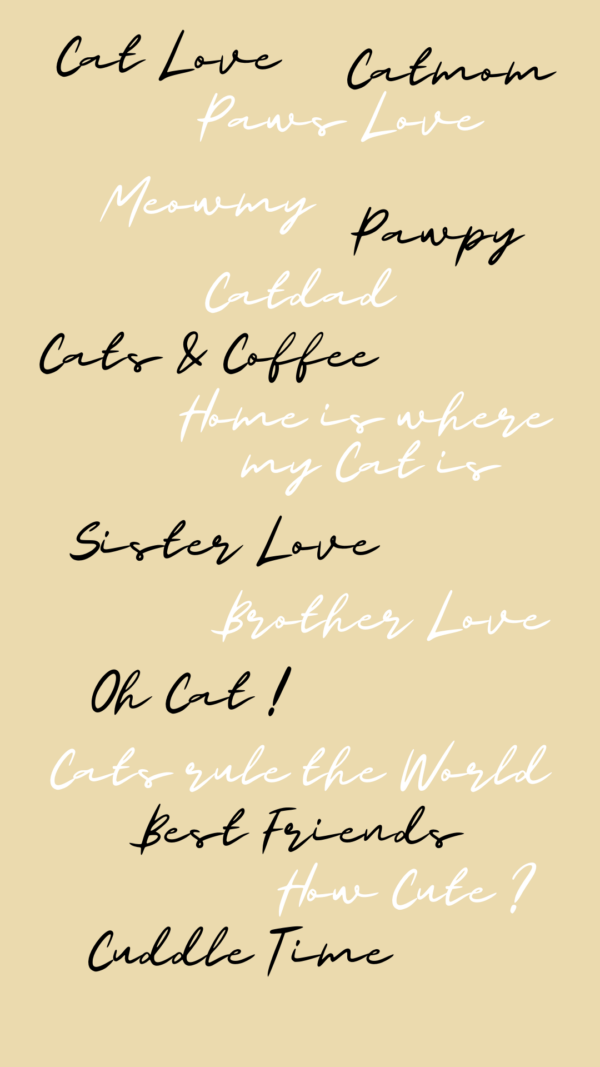 Cat Love
Catmom
Paws Love
Meowmy
Pawpy
Catdad
Cats & Coffee
Home is where
my Cat is
Sister Love
Brother Love
Oh Cat !
Cats rule the World
Best Friends
How Cute ?
Cuddle Time